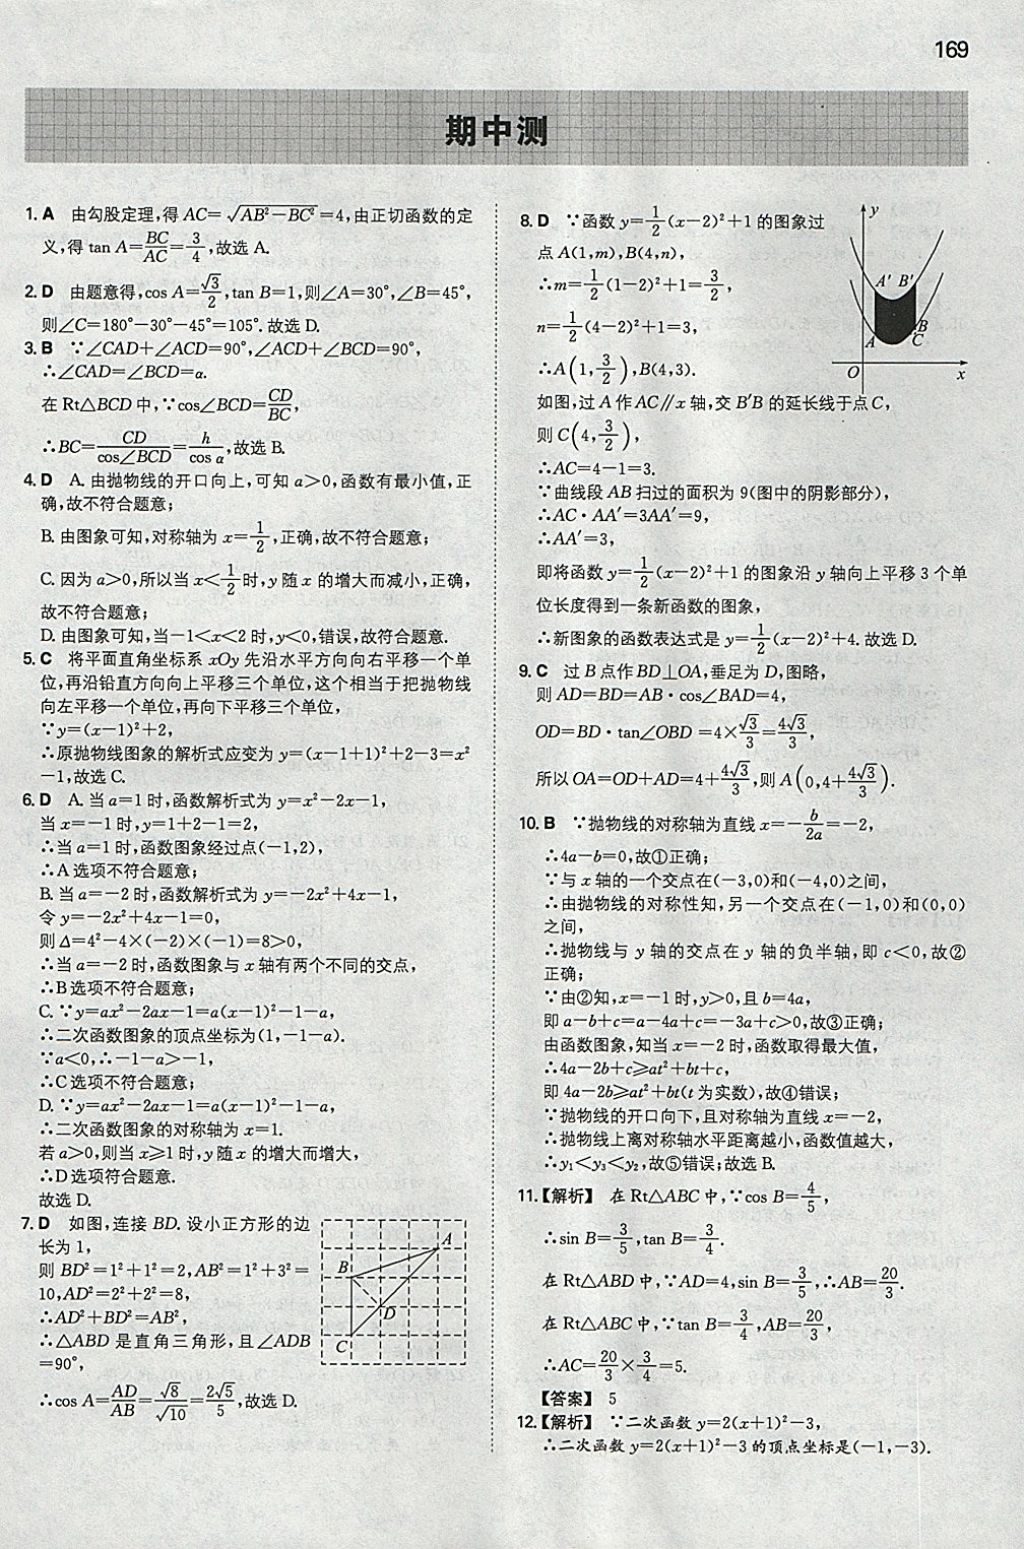 169
期中测
1. A 由勾股定理,得 AC=√(AB²−BC²)=4,由正切函数的定
义,得 tan A=BC/AC=3/4,故选 A.
2. D 由题意得,cos A=√3/2,tan B=1,则∠A=30°,∠B=45°,
则∠C=180°−30°−45°=105°.故选 D.
3. B ∵∠CAD+∠ACD=90°,∠ACD+∠BCD=90°,
∴∠CAD=∠BCD=α.
在 Rt△BCD 中,∵cos∠BCD=CD/BC,
∴BC=CD/cos∠BCD=h/cos α,故选 B.
4. D A. 由抛物线的开口向上,可知 a>0,函数有最小值,正
确,故不符合题意;
B. 由图象可知,对称轴为 x=1/2,正确,故不符合题意;
C. 因为 a>0,所以当 x<1/2时,y 随 x 的增大而减小,正确,
故不符合题意;
D. 由图象可知,当−1<x<2 时,y<0,错误,故符合题意.
5. C 将平面直角坐标系 xOy 先沿水平方向向右平移一个单
位,再沿铅直方向向上平移三个单位,这个相当于把抛物线
向左平移一个单位,再向下平移三个单位,
∵y=(x−1)²+2,
∴原抛物线图象的解析式应变为 y=(x−1+1)²+2−3=x²
−1,故选 C.
6. D A. 当 a=1 时,函数解析式为 y=x²−2x−1,
当 x=−1 时,y=1+2−1=2,
∴当 a=1 时,函数图象经过点(−1,2),
∴A 选项不符合题意;
B. 当 a=−2 时,函数解析式为 y=−2x²+4x−1,
令 y=−2x²+4x−1=0,
则 Δ=4²−4×(−2)×(−1)=8>0,
∴当 a=−2 时,函数图象与 x 轴有两个不同的交点,
∴B 选项不符合题意;
C. ∵y=ax²−2ax−1=a(x−1)²−1−a,
∴二次函数图象的顶点坐标为(1,−1−a).
∵a<0,∴−1−a>−1,
∴C 选项不符合题意;
D. ∵y=ax²−2ax−1=a(x−1)²−1−a,
∴二次函数图象的对称轴为 x=1.
若 a>0,则当 x≥1 时,y 随 x 的增大而增大,
∴D 选项符合题意.
故选 D.
7. D 如图,连接 BD. 设小正方形的边
长为 1,
则 BD²=1²+1²=2,AB²=1²+3²=
10,AD²=2²+2²=8,
∴AD²+BD²=AB²,
∴△ABD 是直角三角形,且∠ADB
=90°,
∴cos A=AD/AB=√8/√10=2√5/5,故选 D.
A
B
D
C
8. D ∵函数 y=1/2(x−2)²+1 的图象过
点 A(1,m),B(4,n),
∴m=1/2(1−2)²+1=3/2,
n=1/2(4−2)²+1=3,
∴A(1,3/2),B(4,3).
y
A′ B′
A
B
C
O
x
如图,过 A 作 AC∥x 轴,交 B′B 的延长线于点 C,
则 C(4,3/2),
∴AC=4−1=3.
∵曲线段 AB 扫过的面积为 9(图中的阴影部分),
∴AC·AA′=3AA′=9,
∴AA′=3,
即将函数 y=1/2(x−2)²+1 的图象沿 y 轴向上平移 3 个单
位长度得到一条新函数的图象,
∴新图象的函数表达式是 y=1/2(x−2)²+4. 故选 D.
9. C 过 B 点作 BD⊥OA,垂足为 D,图略,
则 AD=BD=AB·cos∠BAD=4,
OD=BD·tan∠OBD=4×√3/3=4√3/3,
所以 OA=OD+AD=4+4√3/3,则 A(0,4+4√3/3).
10. B ∵抛物线的对称轴为直线 x=−b/2a=−2,
∴4a−b=0,故①正确;
∵与 x 轴的一个交点在(−3,0)和(−4,0)之间,
∴由抛物线的对称性知,另一个交点在(−1,0)和(0,0)
之间,
∴抛物线与 y 轴的交点在 y 轴的负半轴,即 c<0,故②
正确;
∵由②知,x=−1 时,y>0,且 b=4a,
即 a−b+c=a−4a+c=−3a+c>0,故③正确;
由函数图象,知当 x=−2 时,函数取得最大值,
∴4a−2b+c≥at²+bt+c,
即 4a−2b≥at²+bt(t 为实数),故④错误;
∵抛物线的开口向下,且对称轴为直线 x=−2,
∴抛物线上离对称轴水平距离越小,函数值越大,
∴y₁<y₃<y₂,故⑤错误;故选 B.
11.【解析】 在 Rt△ABC 中,∵cos B=4/5,
∴sin B=3/5,tan B=3/4.
在 Rt△ABD 中,∵AD=4,sin B=3/5,∴AB=20/3.
在 Rt△ABC 中,∵tan B=3/4,AB=20/3,
∴AC=20/3×3/4=5.
【答案】 5
12.【解析】 ∵二次函数 y=2(x+1)²−3,
∴二次函数 y=2(x+1)²−3 的顶点坐标是(−1,−3).